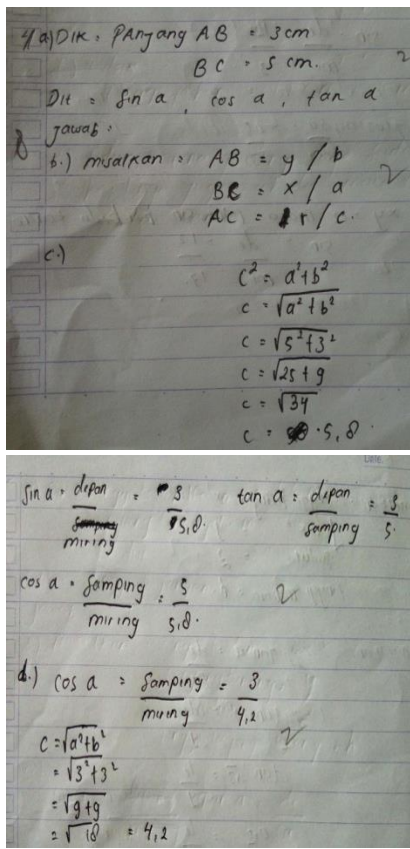 4) a) Dik = Panjang AB = 3 cm
BC = 5 cm.
2
Dit = Sin a, cos a, tan a
Jawab:
8
b.) misalkan = AB = y / b
2
BC = x / a
AC = r / c.
c.)
c² = a²+b²
c = √a²+b²
c = √5²+3²
c = √25+9
c = √34
c = 5,8.
Sin a = depan / miring = 3 / 5,8.
tan a = depan / samping = 3 / 5.
cos a = Samping / miring = 5 / 5,8.
2
d.) cos a = Samping / miring = 3 / 4,2
2
C = √a²+b²
= √3²+3²
= √9+9
= √18 = 4,2